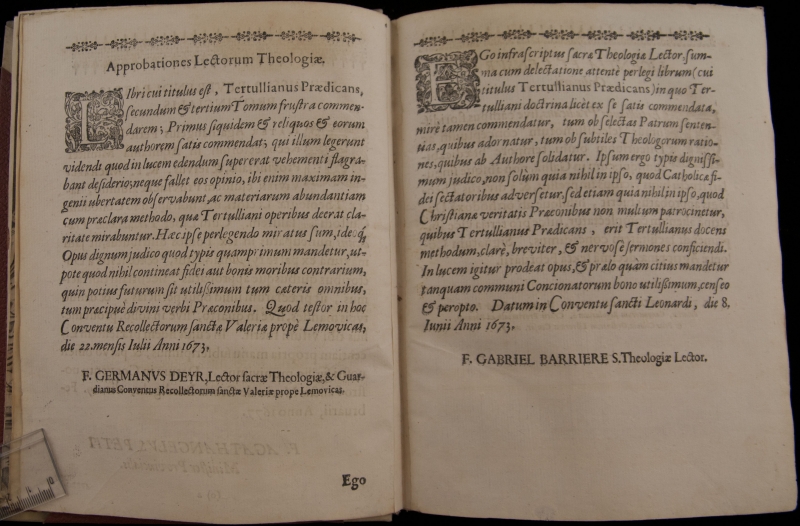 Approbationes Lectorum Theologiæ.
LIbri cui titulus est, Tertullianus Prædicans,
secundum & tertium Tomum frustra commen-
darem; Primus siquidem & reliquos & eorum
authorem satis commendat, qui illum legerunt
videndi quod in lucem edendum supererat vehementi flagra-
bant desiderio; neque fallet eos opinio, ibi enim maximam in-
genii ubertatem observabunt, ac materiarum abundantiam
cum præclara methodo, qua Tertulliani operibus deerat cla-
ritate mirabuntur. Hæc ipse perlegendo miratus sum, ideoq́;
Opus dignum judico quod typis quamprimum mandetur, ut-
pote quod nihil contineat fidei aut bonis moribus contrarium,
quin potius futurum sit utilissimum tum cæteris omnibus,
tum præcipuè divini verbi Præconibus. Quod testor in hoc
Conventu Recollectorum sanctæ Valeriæ propè Lemovicas,
die 22. mensis Iulii Anni 1673,
F. GERMANVS DEYR, Lector sacræ Theologiæ, & Guar-
dianus Conventus Recollectorum sanctæ Valeriæ prope Lemovicas.
Ego
EGo infrascriptus sacræ Theologiæ Lector, sum-
ma cum delectatione attentè perlegi librum (cui
titulus Tertullianus Prædicans) in quo Ter-
tulliani doctrina licèt ex se satis commendata,
mirè tamen commendatur, tum ob selectas Patrum senten-
tias, quibus adornatur, tum ob subtiles Theologorum ratio-
nes, quibus ab Authore solidatur. Ipsum ergo typis dignissi-
mum judico, non solùm quia nihil in ipso, quod Catholicæ fi-
dei sectatoribus adversetur, sed etiam quia nihil in ipso, quod
Christianæ veritatis Præconibus non multum patrocinetur,
quibus Tertullianus Prædicans, erit Tertullianus docens
methodum, clarè, breviter, & nervosè sermones conficiendi.
In lucem igitur prodeat opus, & prælo quàm citius mandetur
tanquam communi Concionatorum bono utilissimum, censeo
& peropto. Datum in Conventu sancti Leonardi, die 8.
Iunii Anni 1673,
F. GABRIEL BARRIERE S. Theologiæ Lector.